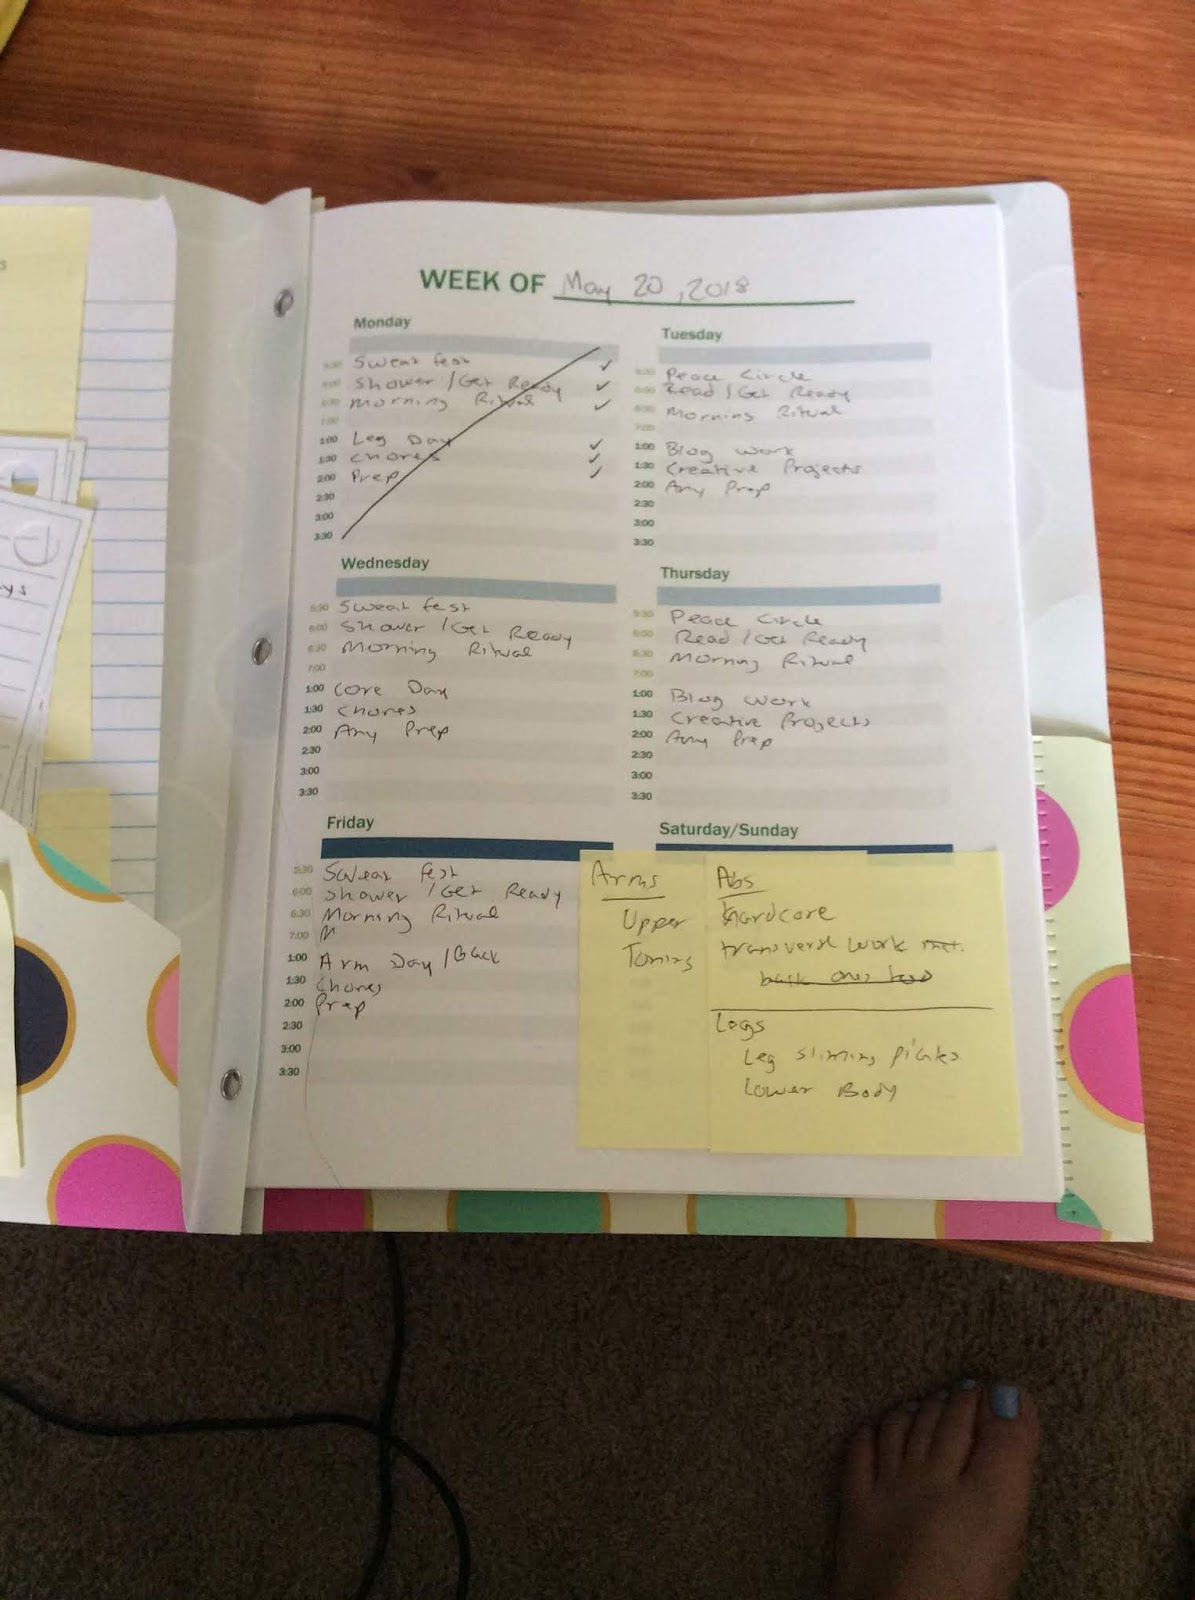 WEEK OF May 20, 2018
Monday
5:30 Sweat fest ✓
6:00 Shower / Get Ready ✓
6:30 Morning Ritual ✓
7:00
1:00 Leg Day ✓
1:30 Chores ✓
2:00 Prep ✓
2:30
3:00
3:30
Tuesday
5:30 Peace Circle
6:00 Read / Get Ready
6:30 Morning Ritual
7:00
1:00 Blog work
1:30 Creative Projects
2:00 Any Prep
2:30
3:00
3:30
Wednesday
5:30 Sweat fest
6:00 Shower / Get Ready
6:30 Morning Ritual
7:00
1:00 Core Day
1:30 Chores
2:00 Any Prep
2:30
3:00
3:30
Thursday
5:30 Peace Circle
6:00 Read / Get Ready
6:30 Morning Ritual
7:00
1:00 Blog work
1:30 Creative Projects
2:00 Any Prep
2:30
3:00
3:30
Friday
5:30 Sweat fest
6:00 Shower / Get Ready
6:30 Morning Ritual
7:00 M
1:00 Arm Day / Back
1:30 Chores
2:00 Prep
2:30
3:00
3:30
Saturday/Sunday
Arms
Upper
Toning
Abs
hardcore
transversl work
Legs
Leg sliming
Lower Body